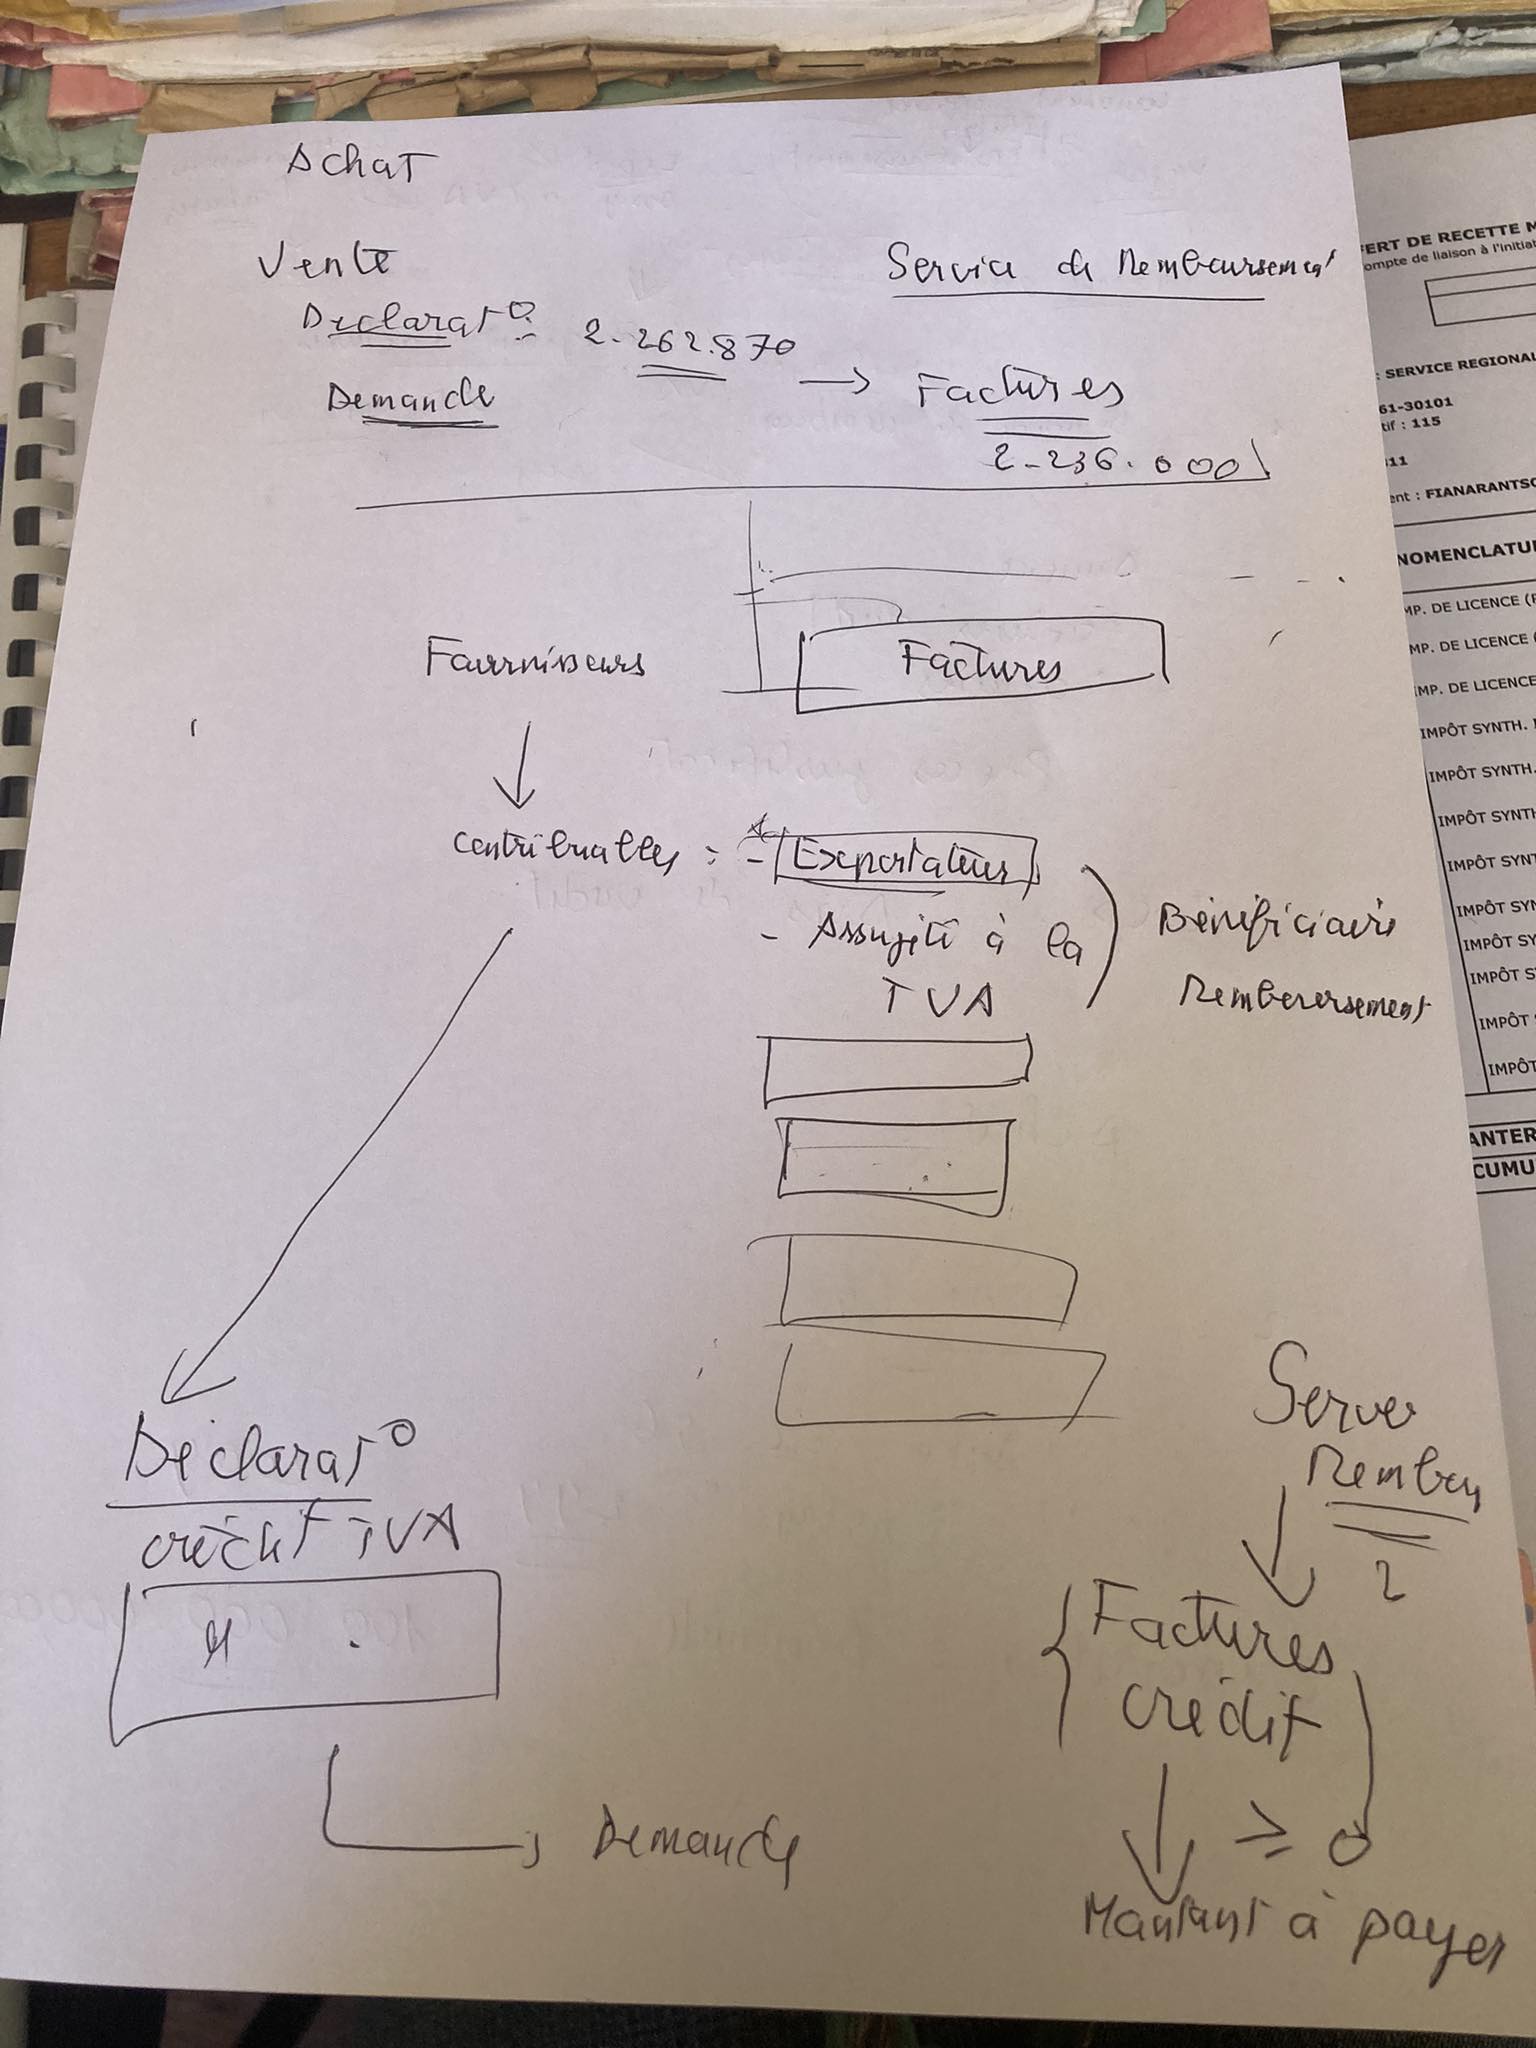 Achat
Vente
Service de Remboursement
Déclarat° : 2.262.870
Demande
→ Factures
2.236.000
Fournisseurs
Factures
Contribuables : - Exportateurs
- Assujeti à la
TVA
Bénéficiaire
Remboursement
Déclarat°
crédit TVA
Demande
Server
Rembou
2
Factures
crédit
≥ 0
Montant à payer
FERT DE RECETTE M
ompte de liaison à l'initiat
: SERVICE REGIONAL
61-30101
tif : 115
311
ent : FIANARANTSO
NOMENCLATU
MP. DE LICENCE (F
MP. DE LICENCE (
IMP. DE LICENCE
IMPÔT SYNTH. 
IMPÔT SYNTH.
IMPÔT SYNTH
IMPÔT SYNT
IMPÔT SYN
IMPÔT SY
IMPÔT S
IMPÔT
IMPÔT
ANTER
CUMU